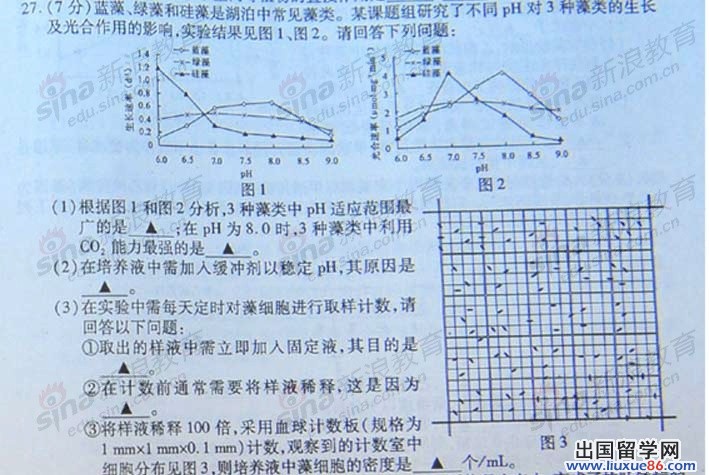 27.(7分)蓝藻、绿藻和硅藻是湖泊中常见藻类。某课题组研究了不同pH对3种藻类的生长
及光合作用的影响,实验结果见图1、图2。请回答下列问题:
蓝藻
绿藻
硅藻
生长速率(d⁻¹)
1.4
1.2
1.0
0.8
0.6
0.4
0.2
0
6.0 6.5 7.0 7.5 8.0 8.5 9.0
pH
图1
蓝藻
绿藻
硅藻
光合速率
5
4
3
2
1
0
6.0 6.5 7.0 7.5 8.0 8.5 9.0
pH
图2
(1)根据图1和图2分析,3种藻类中pH适应范围最
广的是 ▲ ;在pH为8.0时,3种藻类中利用
CO₂能力最强的是 ▲ 。
(2)在培养液中需加入缓冲剂以稳定pH,其原因是
▲ 。
(3)在实验中需每天定时对藻细胞进行取样计数,请
回答以下问题:
①取出的样液中需立即加入固定液,其目的是
▲ 。
②在计数前通常需要将样液稀释,这是因为
▲ 。
③将样液稀释100倍,采用血球计数板(规格为
1 mm×1 mm×0.1 mm)计数,观察到的计数室中
细胞分布见图3,则培养液中藻细胞的密度是 ▲ 个/mL。
图3
sina新浪教育
edu.sina.com.cn
出国留学网
www.liuxue86.com